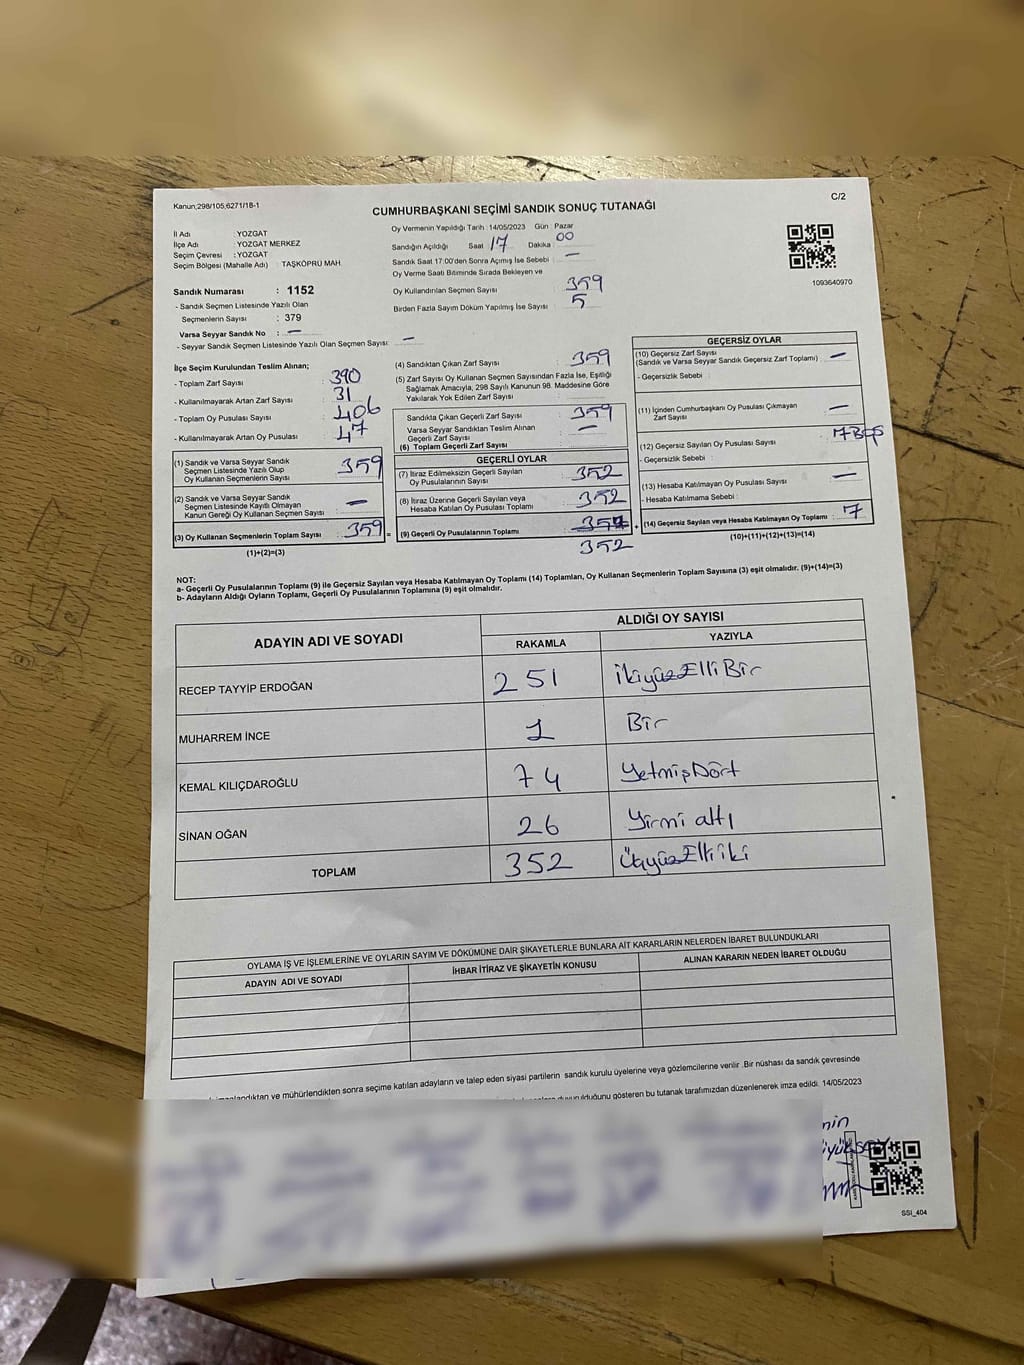 Kanun;298/105,6271/18-1
C/2
CUMHURBAŞKANI SEÇİMİ SANDIK SONUÇ TUTANAĞI
İl Adı : YOZGAT
İlçe Adı : YOZGAT MERKEZ
Seçim Çevresi : YOZGAT
Seçim Bölgesi (Mahalle Adı) : TAŞKÖPRÜ MAH.
Oy Vermenin Yapıldığı Tarih : 14/05/2023 Gün Pazar
Sandığın Açıldığı Saat 17 Dakika 00
Sandık Saat 17:00'den Sonra Açmış İse Sebebi : —
Oy Verme Saati Bitiminde Sırada Bekleyen ve
Oy Kullandırılan Seçmen Sayısı : 359
Birden Fazla Sayım Döküm Yapılmış İse Sayısı : 5
1093640970
Sandık Numarası : 1152
- Sandık Seçmen Listesinde Yazılı Olan
Seçmenlerin Sayısı : 379
Varsa Seyyar Sandık No : —
- Seyyar Sandık Seçmen Listesinde Yazılı Olan Seçmen Sayısı: —
İlçe Seçim Kurulundan Teslim Alınan;
- Toplam Zarf Sayısı : 390
- Kullanılmayarak Artan Zarf Sayısı : 31
- Toplam Oy Pusulası Sayısı : 406
- Kullanılmayarak Artan Oy Pusulası : 47
(1) Sandık ve Varsa Seyyar Sandık
Seçmen Listesinde Yazılı Olup
Oy Kullanan Seçmenlerin Sayısı : 359
(2) Sandık ve Varsa Seyyar Sandık
Seçmen Listesinde Kayıtlı Olmayan
Kanun Gereği Oy Kullanan Seçmen Sayısı : —
(3) Oy Kullanan Seçmenlerin Toplam Sayısı : 359 =
(1)+(2)=(3)
(4) Sandıktan Çıkan Zarf Sayısı : 359
(5) Zarf Sayısı Oy Kullanan Seçmen Sayısından Fazla İse, Eşitliği
Sağlamak Amacıyla, 298 Sayılı Kanunun 98. Maddesine Göre
Yakılarak Yok Edilen Zarf Sayısı :
Sandıkta Çıkan Geçerli Zarf Sayısı : 359
Varsa Seyyar Sandıktan Teslim Alınan
Geçerli Zarf Sayısı : —
(6) Toplam Geçerli Zarf Sayısı
GEÇERLİ OYLAR
(7) İtiraz Edilmeksizin Geçerli Sayılan
Oy Pusulalarının Sayısı : 352
(8) İtiraz Üzerine Geçerli Sayılan veya
Hesaba Katılan Oy Pusulası Toplamı : 352
(9) Geçerli Oy Pusulalarının Toplamı : +
352
GEÇERSİZ OYLAR
(10) Geçersiz Zarf Sayısı
(Sandık ve Varsa Seyyar Sandık Geçersiz Zarf Toplamı) : —
- Geçersizlik Sebebi :
(11) İçinden Cumhurbaşkanı Oy Pusulası Çıkmayan
Zarf Sayısı : —
(12) Geçersiz Sayılan Oy Pusulası Sayısı : 7
- Geçersizlik Sebebi :
(13) Hesaba Katılmayan Oy Pusulası Sayısı : —
- Hesaba Katılmama Sebebi :
(14) Geçersiz Sayılan veya Hesaba Katılmayan Oy Toplamı : 7
(10)+(11)+(12)+(13)=(14)
NOT:
a- Geçerli Oy Pusulalarının Toplamı (9) ile Geçersiz Sayılan veya Hesaba Katılmayan Oy Toplamı (14) Toplamları, Oy Kullanan Seçmenlerin Toplam Sayısına (3) eşit olmalıdır. (9)+(14)=(3)
b- Adayların Aldığı Oyların Toplamı, Geçerli Oy Pusulalarının Toplamına (9) eşit olmalıdır.
ADAYIN ADI VE SOYADI
ALDIĞI OY SAYISI
RAKAMLA YAZIYLA
RECEP TAYYİP ERDOĞAN 251 İkiyüzElliBir
MUHARREM İNCE 1 Bir
KEMAL KILIÇDAROĞLU 74 YetmişDört
SİNAN OĞAN 26 Yirmi altı
TOPLAM 352 ÜçyüzElliiki
OYLAMA İŞ VE İŞLEMLERİNE VE OYLARIN SAYIM VE DÖKÜMÜNE DAİR ŞİKAYETLERLE BUNLARA AİT KARARLARIN NELERDEN İBARET BULUNDUKLARI
ADAYIN ADI VE SOYADI İHBAR İTİRAZ VE ŞİKAYETİN KONUSU ALINAN KARARIN NEDEN İBARET OLDUĞU
ve mühürlendikten sonra seçime katılan adayların ve talep eden siyasi partilerin sandık kurulu üyelerine veya gözlemcilerine verilir .Bir nüshası da sandık çevresinde
gösteren bu tutanak tarafımızdan düzenlenerek imza edildi. 14/05/2023
SSI_404